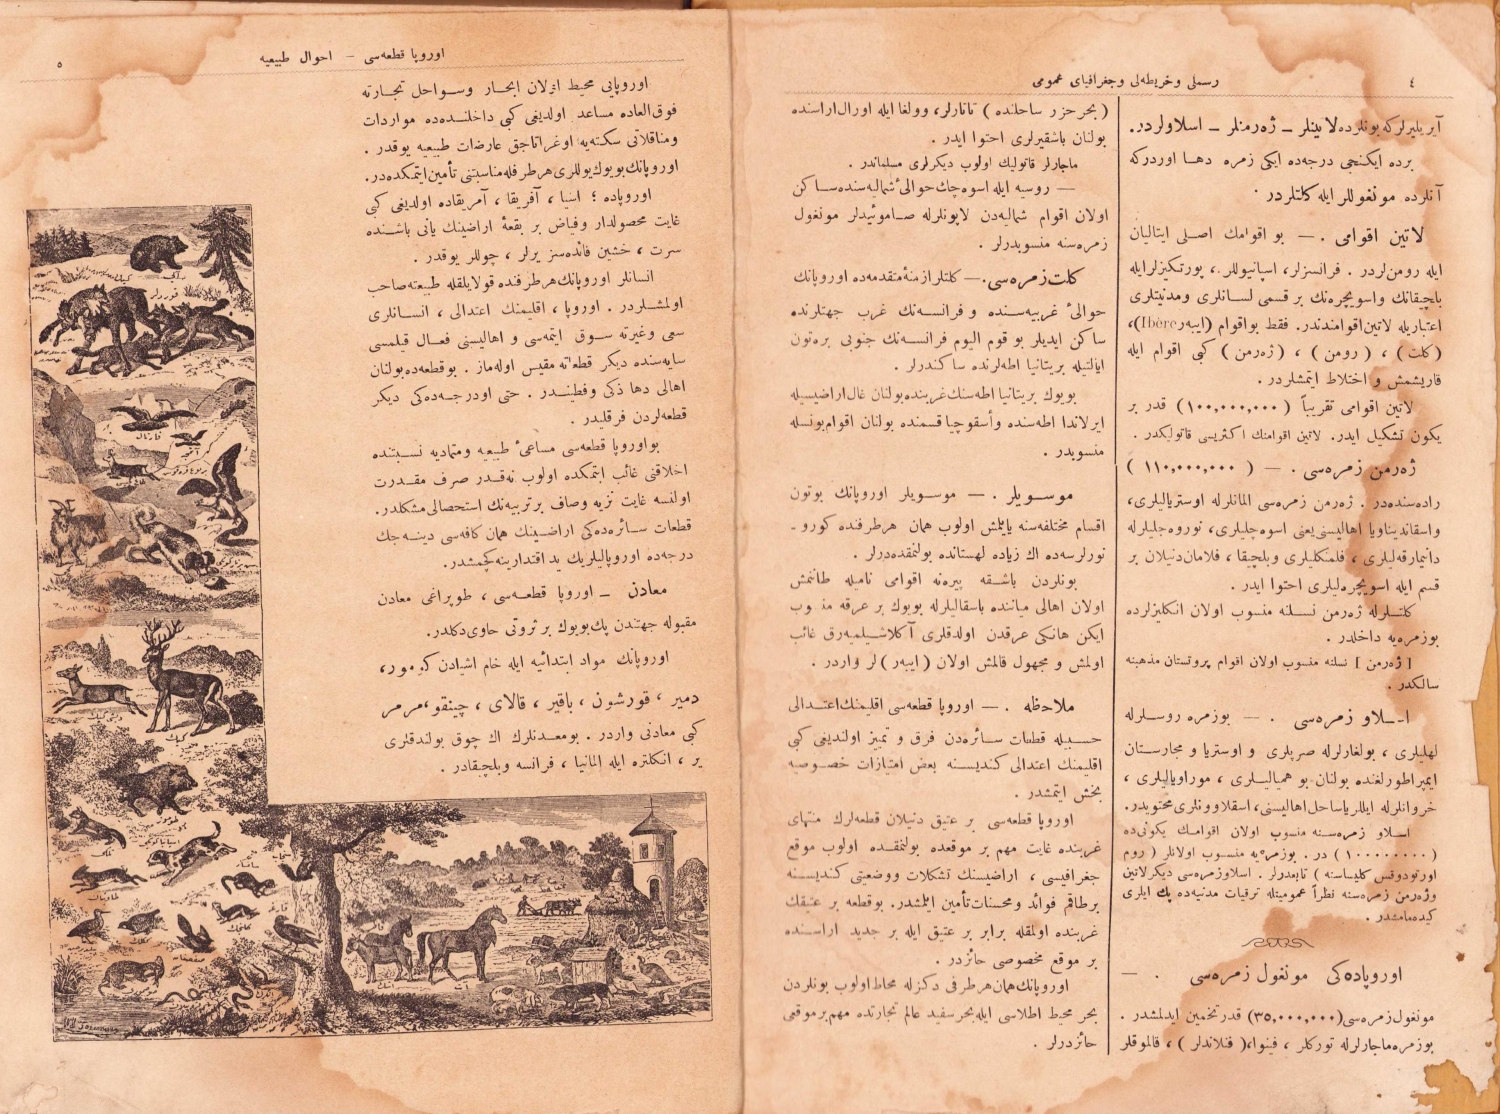 ٤
رسملی وخریطه‌لی وجغرافیای عمومی
آیریلیرلر که بونلرده لاتینلر ــ ژه‌رمنلر ــ اسلاولردر.
برده ایکنجی درجه‌ده ایکی زمره دها اوردر که
آنلرده مونغوللر ایله کلتلردر .
لاتین اقوامی . — بو اقوامك اصلی ایتالیان
ایله رومن‌لردر . فرانسزلر، اسپانیوللر ، پورتکیزلر ایله
بلچیقانك واسویچره‌نك بر قسمی لسانلری ومدنیتلری
اعتباریله لاتین اقوامندندر. فقط بو اقوام (ایبه‌ر Ibère)،
(کلت) ، (رومن) ، (ژه‌رمن) کبی اقوام ایله
قاریشمش و اختلاط ایتمشلردر .
لاتین اقوامی تقریباً (١٠٠,٠٠٠,٠٠٠) قدر بر
یکون تشکیل ایدر. لاتین اقوامنك اکثریسی قاتولیکدر .
ژه‌رمن زمره‌سی . — (١١٠,٠٠٠,٠٠٠)
راده‌سنده‌در . ژه‌رمن زمره‌سی المانلرله اوستریالیلری،
واسقاندیناویا اهالیسنی یعنی اسوه‌چلیلری، نوروه‌جلیلرله
دانیمارقه‌لیلری ، فلمنکلیلری وبلچیقا ، فلامان دنیلان بر
قسم ایله اسویچره‌لیلری احتوا ایدر .
کلتلرله ژه‌رمن نسلنه منسوب اولان انکلیزلرده
بوزمره‌یه داخلدر .
[ژه‌رمن] نسلنه منسوب اولان اقوام پروتستان مذهبنه
سالکدر .
اسلاو زمره‌سی . — بوزمره روسلرله
لهلیلری ، بولغارلرله صربلری و اوستریا و مجارستان
ایمپراطورلغنده بولنان بوهمیالیلری ، موراویالیلری ،
خرواتلرله ایللریا ساحل اهالیسنی، اسقلاوونلری محتویدر.
اسلاو زمره‌سنه منسوب اولان اقوامك یکونی‌ده
(١٠٠٠٠٠٠٠٠) در . بوزمره‌یه منسوب اولانلر (روم
اورتودوقس کلیساسنه) تابعدرلر . اسلاوزمره‌سی دیکر لاتین
وژه‌رمن زمره‌سنه نظراً عمومیتله ترقیات مدنیه‌ده پك ایلری
کیده‌مامشدر .
اوروپاده‌کی مونغول زمره‌سی . —
مونغول زمره‌سی (٣٥,٠٠٠,٠٠٠) قدر تخمین ایدلمشدر .
بوزمره ماجارلرله تورکلر ، فینوا، (فنلاندلر) ، قالموقلر
(بحر حزر ساحلنده) تاتارلر، وولغا ایله اورال اراسنده
بولنان باشقیرلری احتوا ایدر .
ماجارلر قاتولیك اولوب دیکرلری مسلماندر .
— روسیه ایله اسوه‌چك حوالئ شمالیه‌سنده ساکن
اولان اقوام شمالیه‌دن لاپونلرله صاموئیدلر مونغول
زمره‌سنه منسوبدرلر .
کلت زمره‌سی . — کلتلر ازمنهٔ متقدمه‌ده اوروپانك
حوالئ غربیه‌سنده و فرانسه‌نك غرب جهتلرنده
ساکن ایدیلر بو قوم الیوم فرانسه‌نك جنوبی بره‌تون
ایالتیله بریتانیا اطه‌لرنده ساکندرلر .
بویوك بریتانیا اطه‌سنك غربنده بولنان غال اراضیسیله
ایرلاندا اطه‌سنده وأسقوچیا قسمنده بولنان اقوام بونسله
منسوبدر .
موسویلر . — موسویلر اوروپانك بوتون
اقسام مختلفه‌سنه یایلمش اولوب همان هرطرفنده کورو ـ
نورلرسه‌ده اك زیاده لهستانده بولنمقده‌درلر .
بونلردن باشقه پیره‌نه اقوامی نامیله طانمش
اولان اهالی میاننده باسقالیلرله بویوك بر عرقه منسوب
ایکن هانکی عرقدن اولدقلری آکلاشیلمیه‌رق غائب
اولمش و مجهول قالمش اولان (ایبه‌ر) لر واردر .
ملاحظه . — اوروپا قطعه‌سی اقلیمنك اعتدالی
حسبیله قطعات سائره‌دن فرق و تمییز اولندیغی کبی
اقلیمنك اعتدالی کندیسنه بعض امتیازات خصوصیه
بخش ایتمشدر .
اوروپا قطعه‌سی بر عتیق دنیلان قطعه‌لرك منتهای
غربنده غایت مهم بر موقعده بولنمقده اولوب موقع
جغرافیسی ، اراضیسنك تشکلات ووضعیتی کندیسنه
برطاقم فوائد ومحسنات تأمین ایلمشدر. بوقطعه بر عتیقك
غربنده اولمقله برابر بر عتیق ایله بر جدید اراسنده
بر موقع مخصوصی حائزدر .
اوروپانك همان هرطرفی دکزله محاط اولوب بونلردن
بحر محیط اطلاسی ایله بحر سفید عالم تجارتده مهم بر موقعی
حائزدرلر .
اوروپا قطعه‌سی — احوال طبیعیه
٥
اوروپایی محیط اولان ابحار وسواحل تجارته
فوق‌العاده مساعد اولدیغی کبی داخلنده‌ده مواردات
ومناقلاتی سکته‌یه اوغراتاجق عارضات طبیعیه یوقدر .
اوروپانك بویوك یوللری هرطرفله مناسبتنی تأمین ایتمکده‌در.
اوروپاده ؛ اسیا ، آفریقا ، آمریقاده اولدیغی کبی
غایت محصولدار وفیاض بر بقعهٔ اراضینك یانی باشنده
سرت ، خشین فائده‌سز یرلر ، چوللر یوقدر .
انسانلر اوروپانك هرطرفنده قولایلقله طبیعته صاحب
اولمشلردر . اوروپا ، اقلیمنك اعتدالی ، انسانلری
سعی وغیرته سوق ایتمه‌سی و اهالیسنی فعال قیلمسی
سایه‌سنده دیکر قطعاته مقیس اوله‌ماز . بوقطعه‌ده بولنان
اهالی دها ذکی وفطیندر . حتی اودرجه‌ده‌کی دیکر
قطعه‌لردن فرقلیدر .
بواوروپا قطعه‌سی مساعئ طبیعیه ومتمادیه نسبتنده
اخلاقنی غائب ایتمکده اولوب نه‌قدر صرف مقدرت
اولنسه غایت نزیه وصاف بر تربیه‌نك استحصالی مشکلدر.
قطعات سائره‌ده‌کی اراضینك همان کافه‌سی دینه‌جك
درجه‌ده اوروپالیلریك ید اقتدارینه کچمشدر.
معادن ــ اوروپا قطعه‌سی ، طوپراغی معادن
مقبوله جهتندن پك بویوك بر ثروتی حاوی دکلدر.
اوروپانك مواد ابتدائیه ایله خام اشیادن کومور،
دمیر ، قورشون ، باقیر ، قالای ، چینقو ، مرمر
کبی معادنی واردر . بومعدنلرك اك چوق بولندقلری
یر ، انکلتره ایله المانیا ، فرانسه وبلچیقادر .
قوردلر
قارتال
کییك